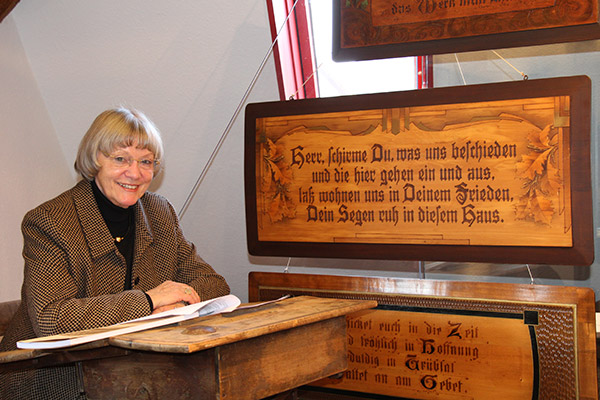 das Werk nicht
Herr, schirme Du, was uns beschieden
und die hier gehen ein und aus,
laß wohnen uns in Deinem Frieden,
Dein Segen ruh in diesem Haus.
euch in die Zeit
fröhlich in Hoffnung
in Trübsal
an am Gebet.